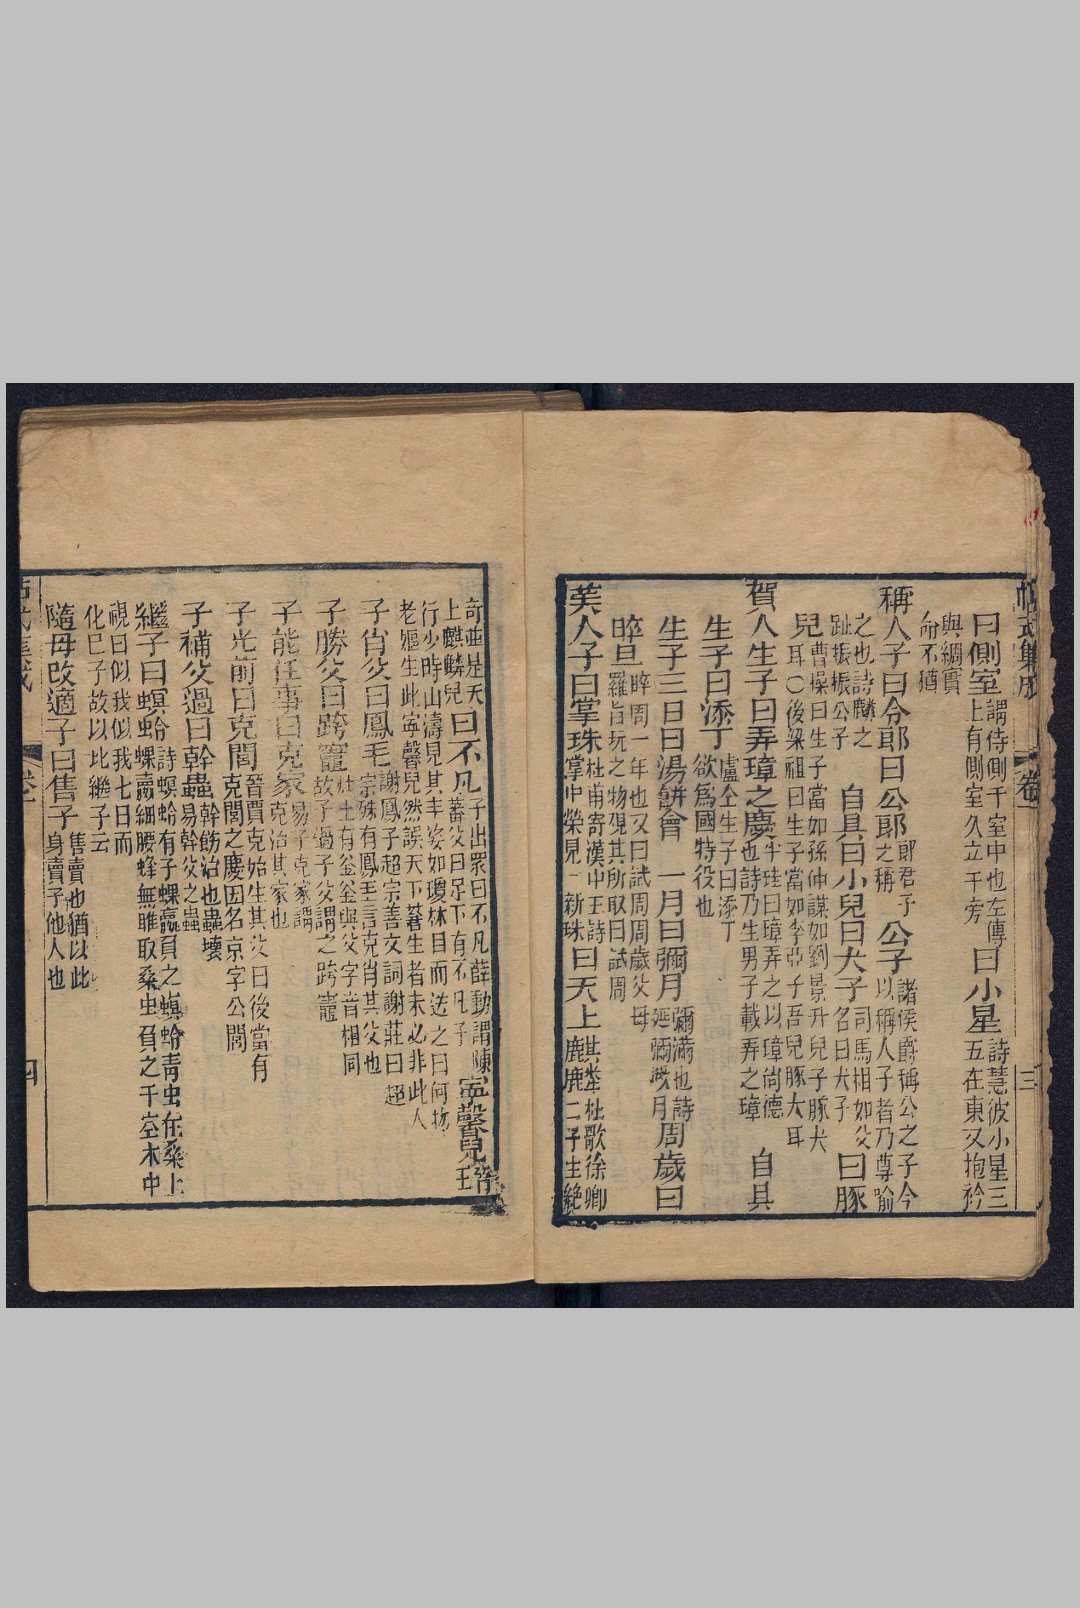 帖式集成 卷一 三
曰側室謂侍側于室中也左傳上有側室久立于旁曰小星詩嘒彼小星三五在東又抱衾
與裯寔命不猶
稱人子曰令郎曰公郎郎君子之稱公子諸侯爵稱公之子今以稱人子者乃尊喻
之也詩麟之趾振振公子自具曰小兒曰犬子司馬相如父名曰犬子曰豚
兒曹操曰生子當如孫仲謀如劉景升兒子豚犬耳〇後梁祖曰生子當如李亞子吾兒豚犬耳
賀人生子曰弄璋之慶半珪曰璋弄之以璋尚德也詩乃生男子載弄之璋自具
生子曰添丁盧仝生子曰添丁欲為國特役也
生子三日曰湯餅會一月曰彌月彌滿也詩誕彌厥月周歲曰
晬旦晬周一年也又曰試周周歲父母羅旨玩之物覘其所取曰試周
美人子曰掌珠杜甫寄漢中王詩掌中榮見一新珠曰天上麒麟杜歌徐卿二子生絕
奇並是天上麒麟兒曰不凡子出眾曰不凡薛勳謂陳蕃父曰足下有不凡子寧馨兒晉王
行少時山濤見其丰姿如瓊林目而送之曰何物老嫗生此寧馨兒然誤天下蒼生者未必非此人
子肖父曰鳳毛謝鳳子超宗善文詞謝莊曰超宗殊有鳳毛言克肖其父也
子勝父曰跨竈灶上有釜釜與父字音相同故子過子父謂之跨竈
子能任事曰克家易子克家謂克治其家也
子光前曰克閭晉賈克始生其父曰後當有克閭之慶因名克字公閭
子補父過曰幹蠱幹飭治也蠱壞易幹父之蠱
繼子曰螟蛉詩螟蛉有子蜾蠃負之螟蛉青虫在桑上蜾蠃細腰蜂無雌取桑虫負之于空木中
祝曰似我似我七日而化巳子故以比繼子云
隨母改適子曰售子售賣也猶以此身賣子他人也
卷一 四